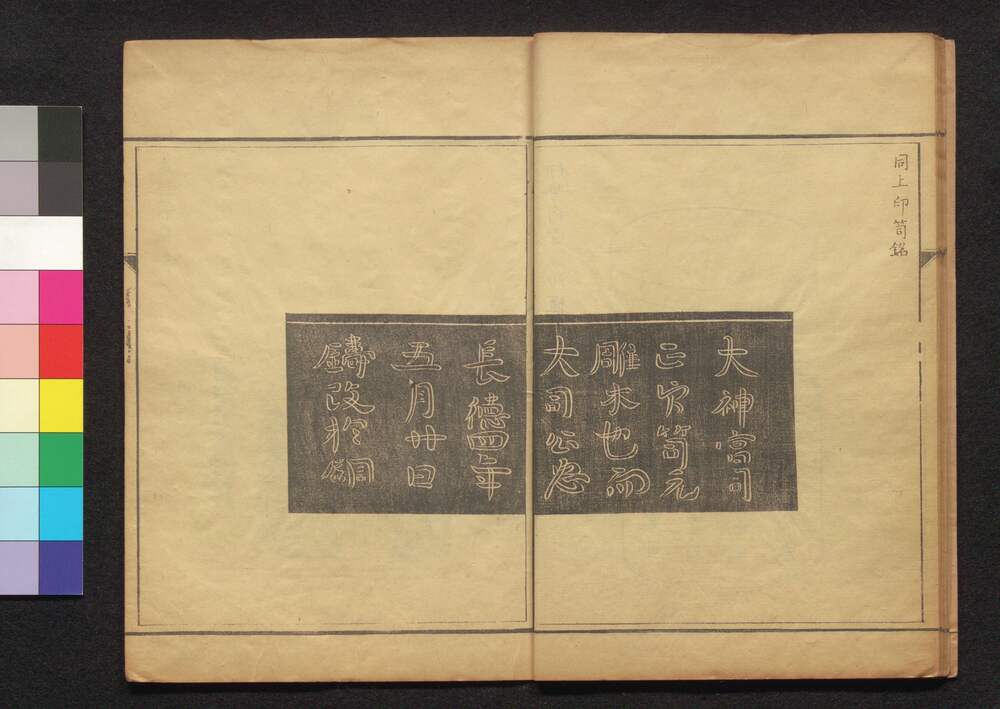 同上印笥銘
大神宮司
正印笥元
雕木也而
大司公忠
長德四年
五月廿日
鑄改於銅